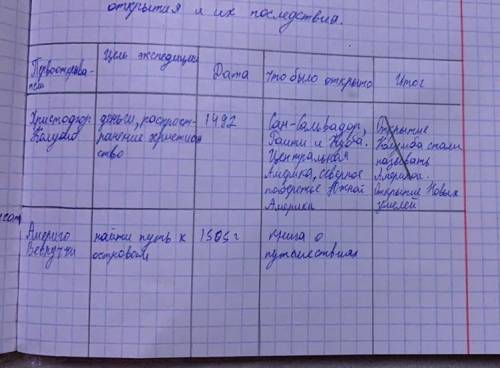 открытая и их последствия.
Первооткрыва-
тель
Цель экспедиции
Дата
что было открыто
Итог
Христофор
Колумб
деньги, распрост-
ранение христиан
ство
1492
Сан-Сальвадор,
Гаити и Куба.
Центральная
Америка, северное
побережье Южной
Америки
Открытие
Колумба стали
называть
Америкой.
Открытие Новых
земель
Америго
Веспуччи
найти путь к
островам
1505 г
книга о
путешествиях